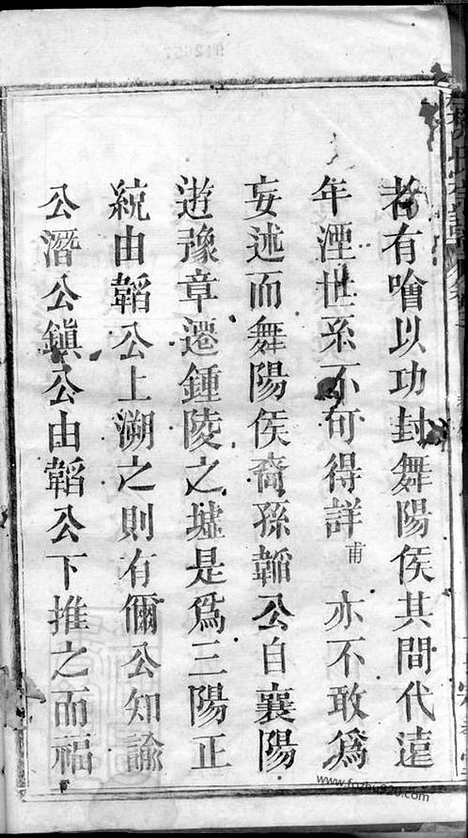 者有噲以功封舞陽侯其間代遠
年湮世系不可得詳甫亦不敢爲
妄述而舞陽侯裔孫韜公自襄陽
遊豫章遷鍾陵之墟是爲三陽正
統由韜公上溯之則有儞公知諭
公潛公鎮公由韜公下推之而福
www.fozhu920.com